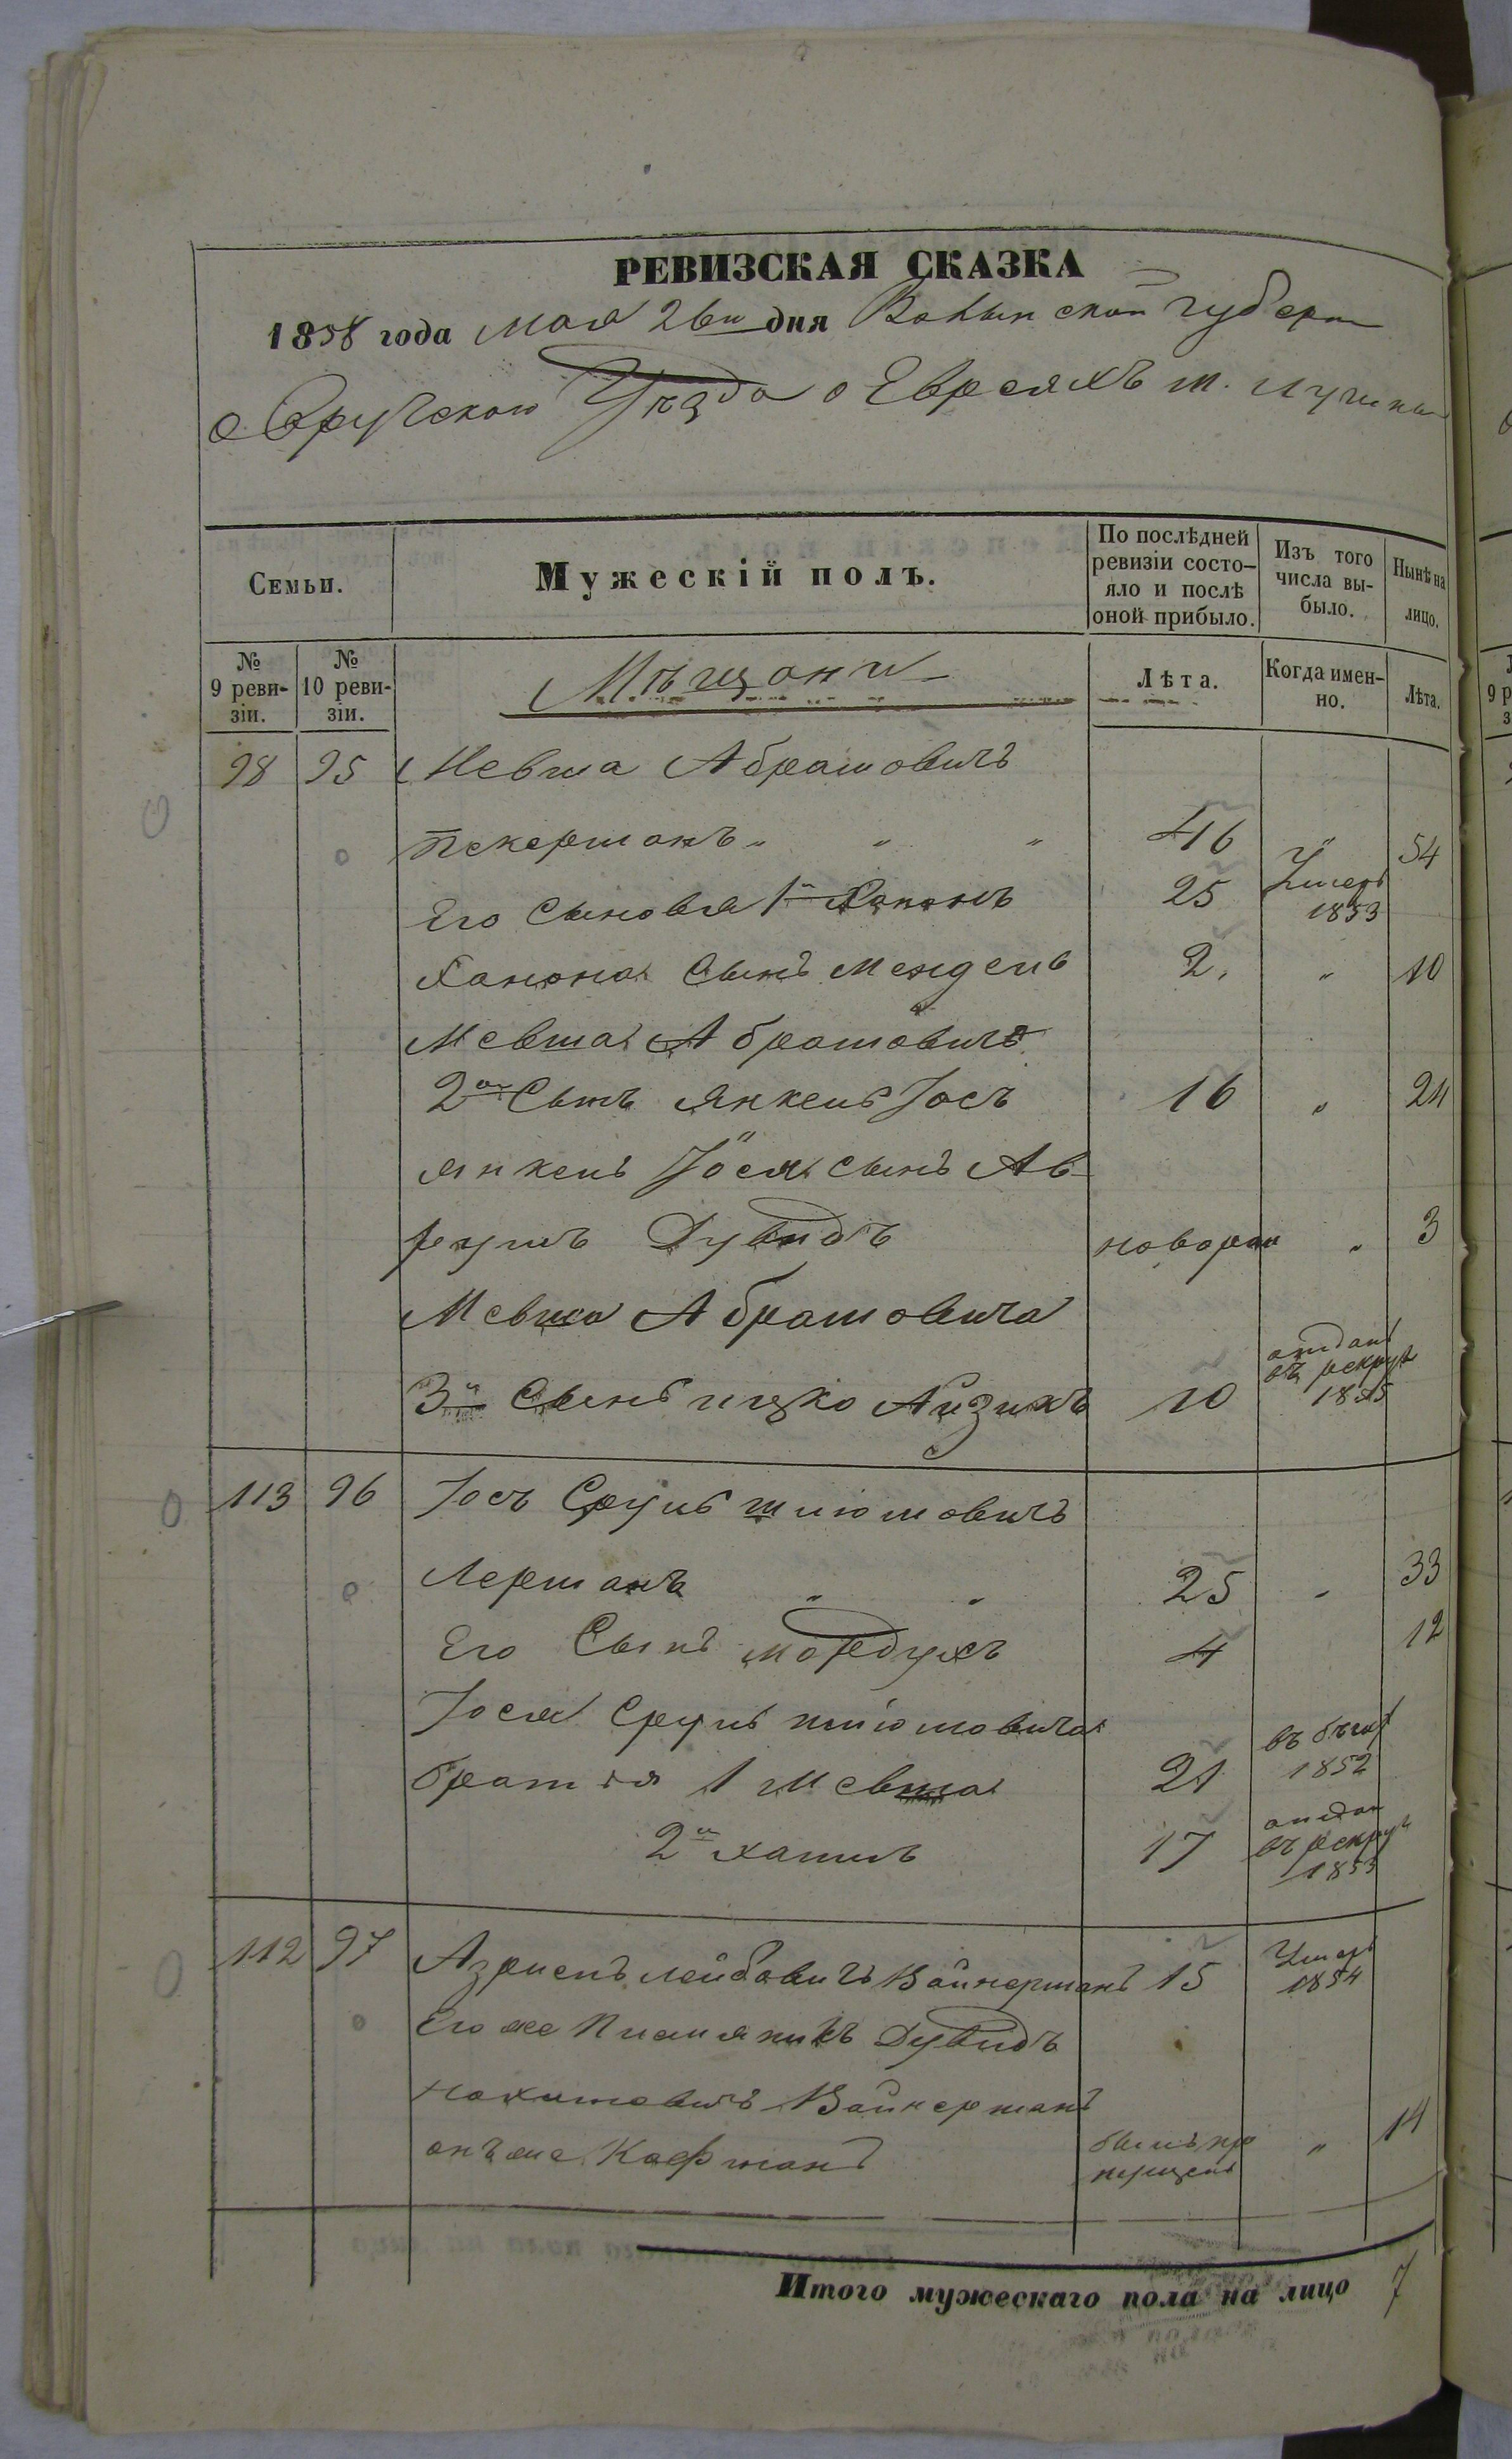 РЕВИЗСКАЯ СКАЗКА
1858 года Мая 26го дня Волынской губерни
Овручского Уезда о Евреяхъ м. Лучины
Семьи.
Мужескій полъ.
По послѣдней ревизіи состояло и послѣ оной прибыло.
Изъ того числа выбыло.
Нынѣ на лицо.
№ 9 ревизіи.
№ 10 ревизіи.
Мѣщани
Лѣта.
Когда именно.
Лѣта.
98 95 Мевша Абрамовичъ
Пекерманъ " " " 46 " 54
Его Сыновья 1й Ханонъ 25 Умеръ 1853
Ханона Сынъ Мендель 2 " 10
Мевша Абрамовичъ
2й Сынъ Янкель Іосъ 16 " 24
Янкель Іося сынъ Ав-
румъ Дувидъ новорож " 3
Мевша Абрамовича
3й Сынъ Ицко Айзикъ 10 отданъ въ рекруты 1855
113 96 Іосъ Сруль Шліомовичъ
Лерманъ " " 25 " 33
Его Сынъ Мордухъ 4 12
Іося Сруль Шліомовича
братія 1 Мевша 21 въ бѣгах 1852
2й Хаимъ 17 отдан въ рекруты 1853
112 97 Азріель Лейбовичъ Вайнерманъ 15 Умеръ 1854
Его же Племяникъ Дувидъ
Нахимовичъ Вайнерманъ
онъ же Кафманъ былъ пропущенъ " 14
Итого мужескаго пола на лицо 7